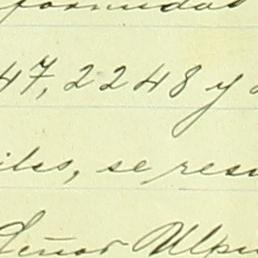 formidad
47, 2248 y
iles, se res
Señor Ulp